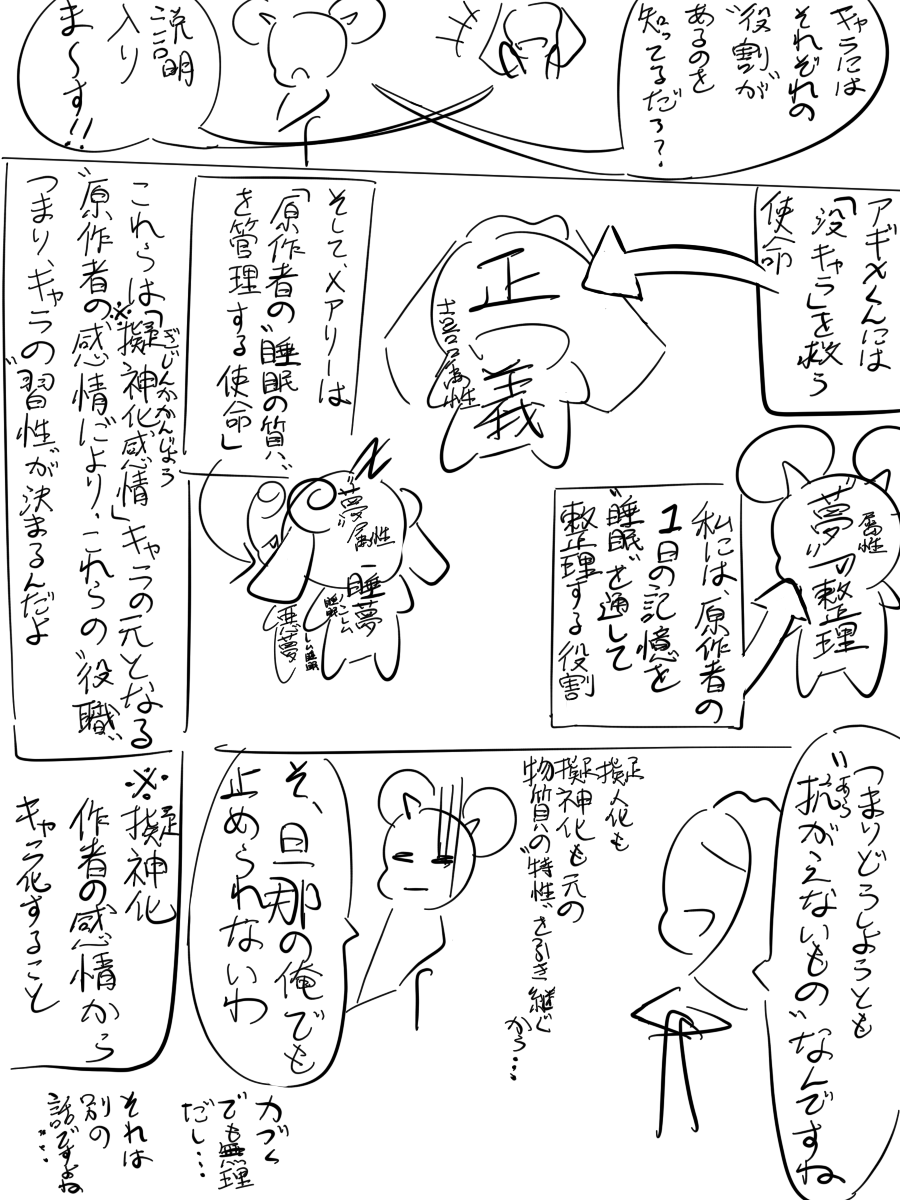 キャラには
それぞれの
"役割"が
あるのを
知ってるだろ?
説明
入り
ま〜す!!
アギメくんには
「没キャラ」を救う
使命
正義
喜属性
そして、メアリーは
「原作者の"睡眠の質"
を管理する使命」
これらは「※擬神化感情」キャラの元となる
ぎじんかかんじょう
"原作者の感情により、これらの"役職"
つまり、キャラの"習性が決まるんだよ
"夢"の整理
属性
私には、原作者の
1日の記憶を
"睡眠"を通して
整理する役割
夢
属性
睡夢
悪夢
つまりどうしようとも
"抗がえないもの"なんですね
あら
擬人化も
擬神化も元の
物質の"特性"を引き継ぐ
から…
そ、旦那の俺でも
止められないわ
※擬神化
作者の感情から
キャラ化すること
力づく
でも無理
だし…
それは
別の
話ですよね
…